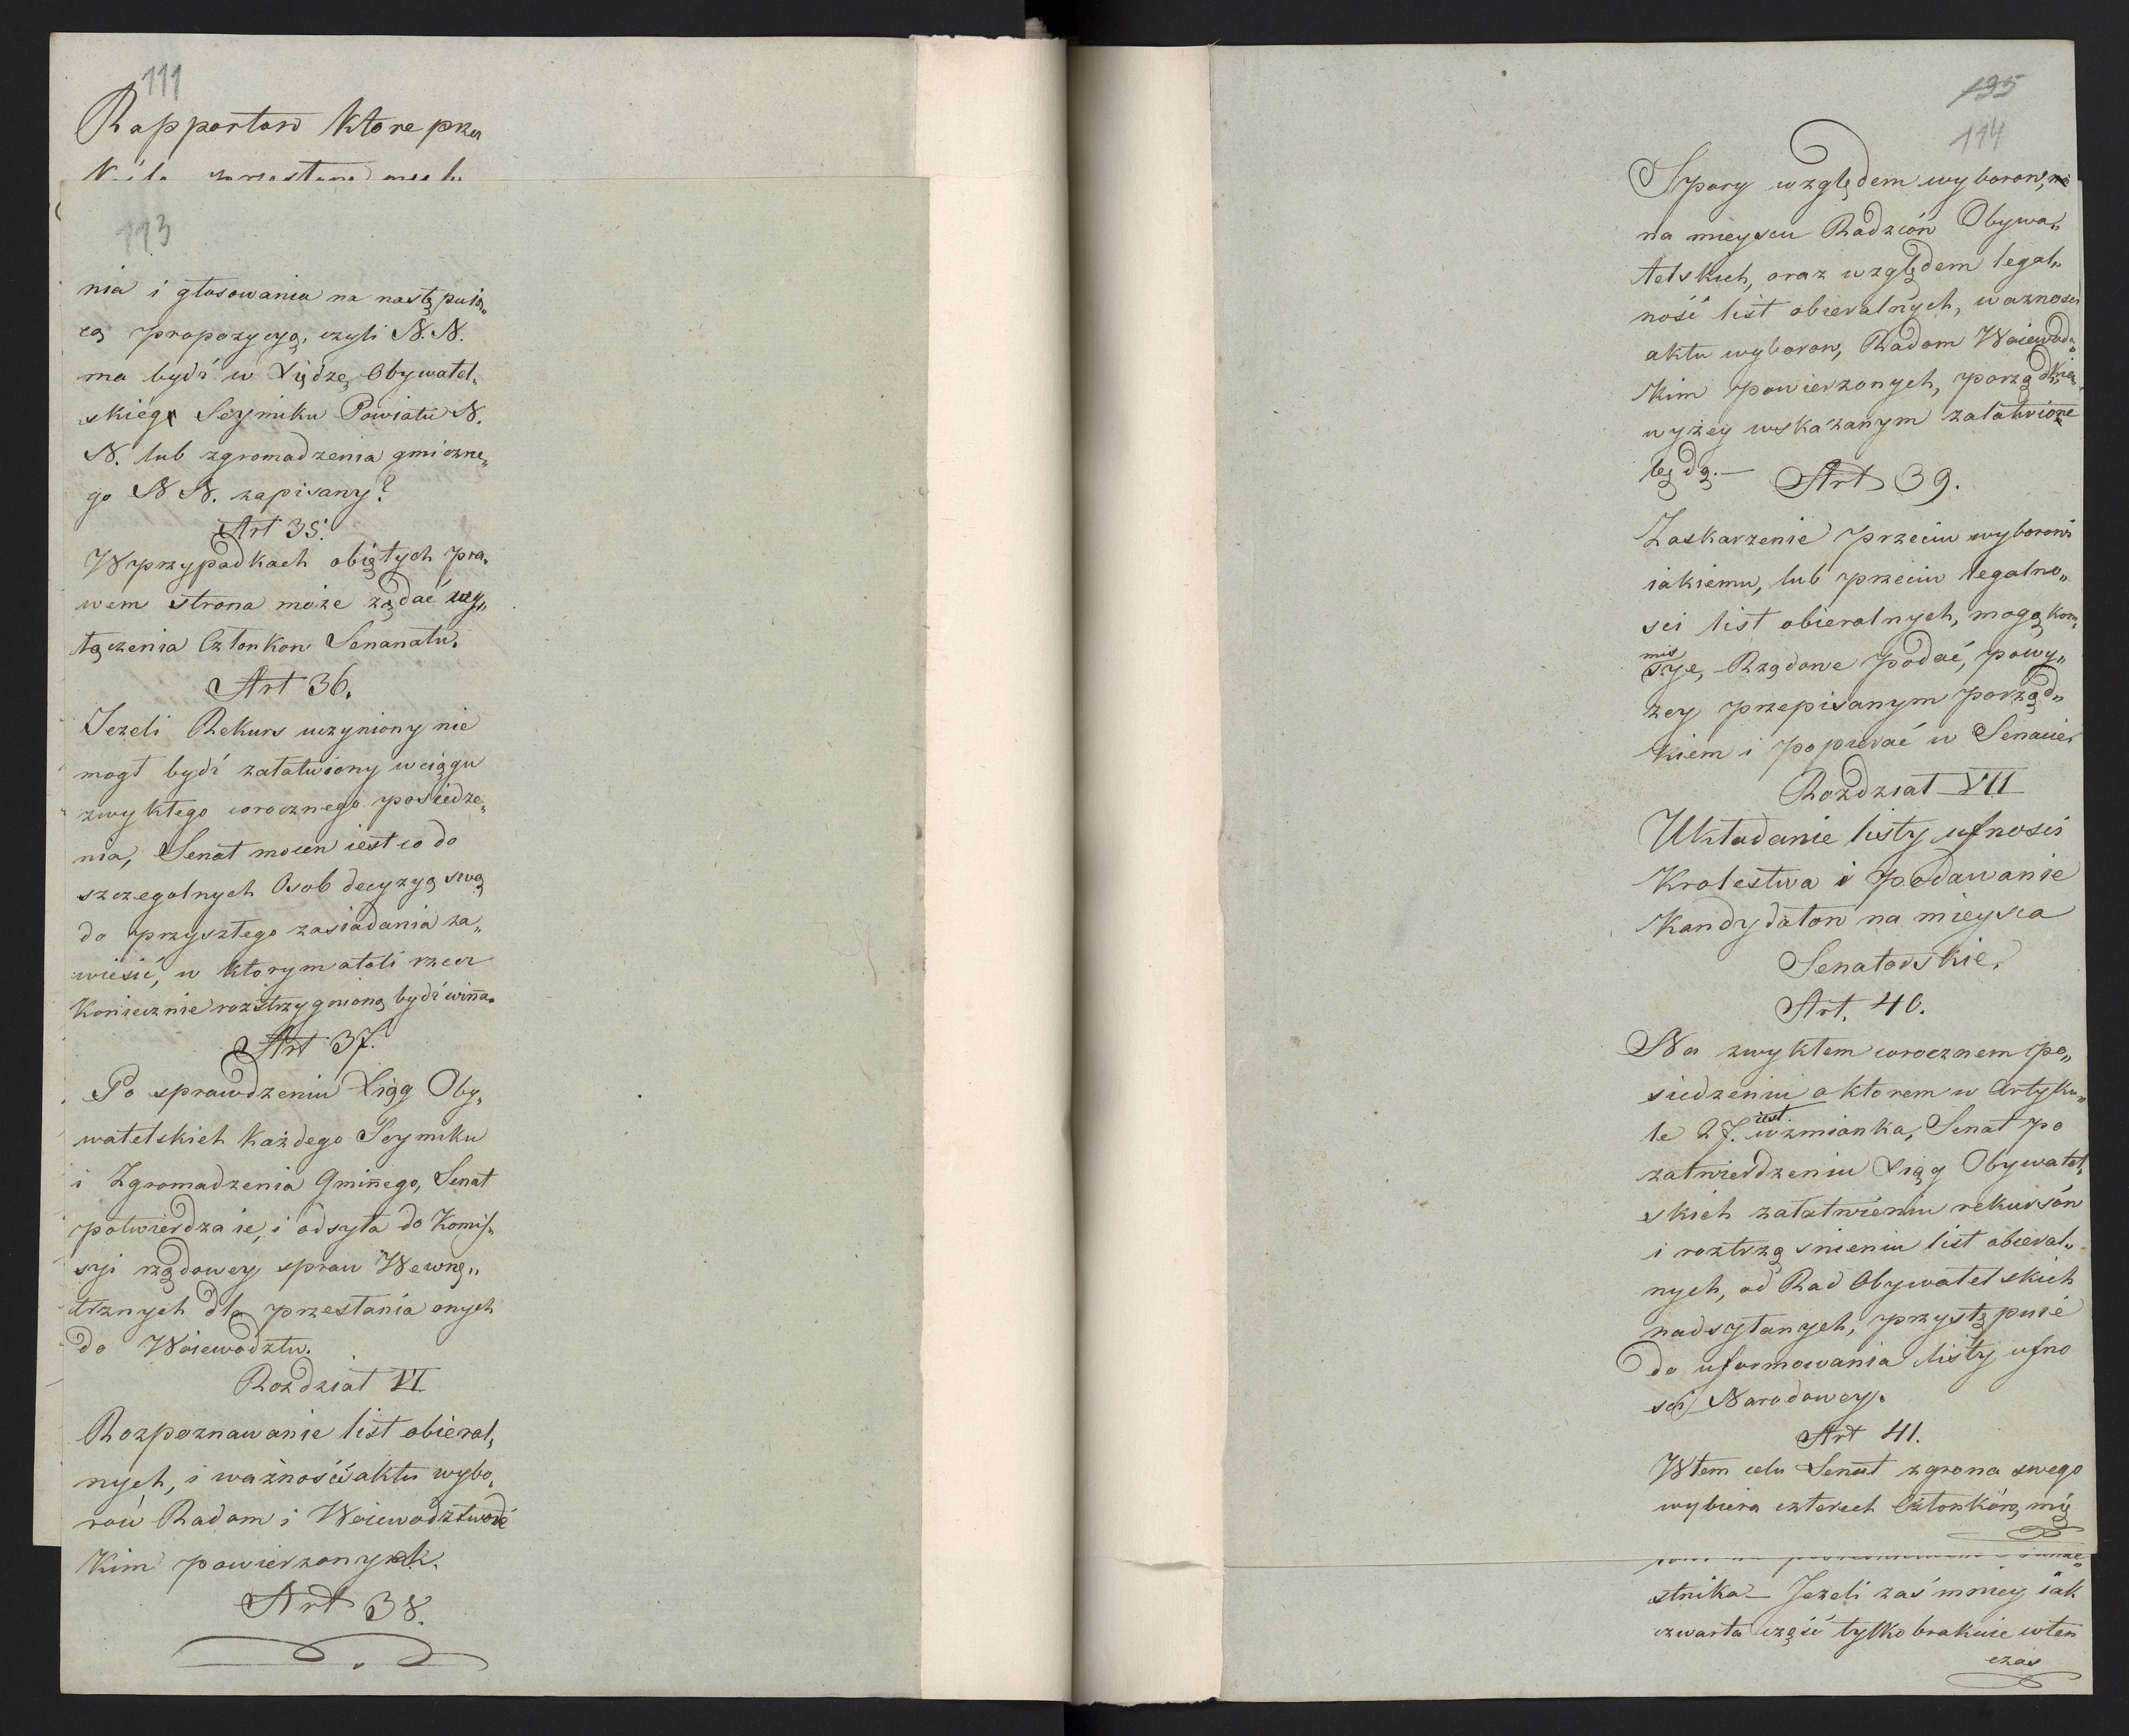 111
Rapportow ktore prze
113
nia i głosowania na następuią„
cą propozycyą, czyli N. N.
ma bydź w Xiędze Obywatel„
skiey Seymiku Powiatu N.
N. lub zgromadzenia gminne„
go N. N. zapisany?
Art 35.
W przypadkach obiętych pra„
wem strona może żądać wy„
łączenia Członkow Senanatu.
Art 36.
Jezeli Rekurs uczyniony nie
mogł bydź załatwiony w ciągu
zwykłego corocznego posiedze„
nia, Senat mocen iest co do
szczegolnych Osob decyzyą swą
do przyszłego zasiadania za„
wiesić, w ktorym atoli rzecz
koniecznie rozstrzygnioną bydź winna.
Art 37.
Po sprawdzeniu Xiąg Oby„
watelskich każdego Seymiku
i Zgromadzenia Gminnego, Senat
potwierdza ie, i odsyła do Komis„
syi rządowey spraw Wewnę„
trznych dla przesłania onych
do Woiewodztw.
Rozdział VI
Rozpoznawanie list obieral„
nych, i ważność aktu wybo„
row Radom i Woiewodztwodz
kim powierzonych.
Art 38.
135
114
Spory względem wyborow,
na mieyscu Radzców Obywa„
telskich, oraz względem legal„
ność list obieralnych, wazności
aktu wyborow, Radom Woiewodz„
kim powierzonych, porządkiem
wyżey wskazanym załatwione
będą.— Art 39.
Zaskarzenie przeciw wyborowi
iakiemu, lub przeciw legalno„
sci list obieralnych, mogą kom„
mis
sye, Rządowe podać, powy„
zey przepisanym porząd„
kiem i popierać w Senacie.
Rozdział VII
Układanie listy ufności
Krolestwa i podawanie
Kandydatow na mieysca
Senatorskie.
Art. 40.
Na zwykłem corocznem po„
siedzeniu o ktorem w Artyku„
le 27. iest wzmianka, Senat po
zatwierdzeniu Xiąg Obywatel„
skich załatwieniu rekursów
i roztrząśnieniu list obieral„
nych, od Rad Obywatelskich
nadsyłanych, przystępuie
do uformowania listy ufno
sci Narodowey.
Art 41.
W tem celu Senat zgrona swego
wybiera czterech Członków, mię
stnika — Jezeli zaś mniey iak
czwarta część tylko brakuie wten
czas